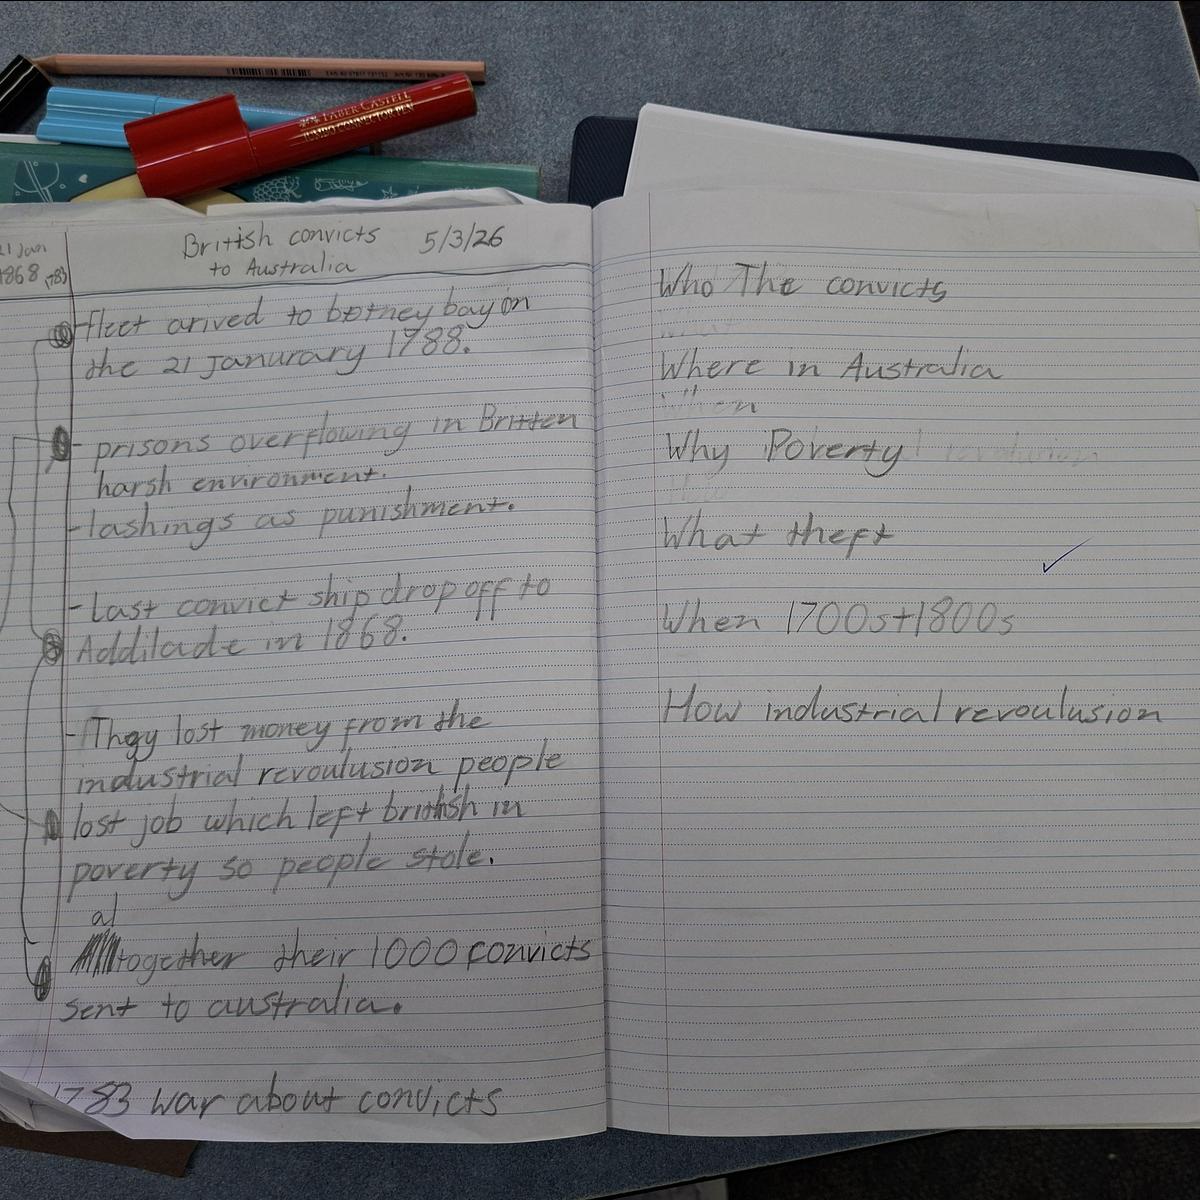 FABER-CASTELL
JUMBO CONNECTOR PEN
21 Jan
1868 (783)
British convicts 5/3/26
to Australia
-fleet arived to botney bay on
the 21 Janurary 1788.
- prisons overflowing in Britten
harsh environment.
- lashings as punishment.
- Last convict ship drop off to
Addilade in 1868.
- They lost money from the
industrial revoulusion people
lost job which left british in
poverty so people stole.
al
together their 1000 convicts
sent to australia.
1783 war about convicts
Who The convicts
What
Where in Australia
When
Why Poverty revoulusion
How
What theft
When 1700s+1800s
How industrial revoulusion